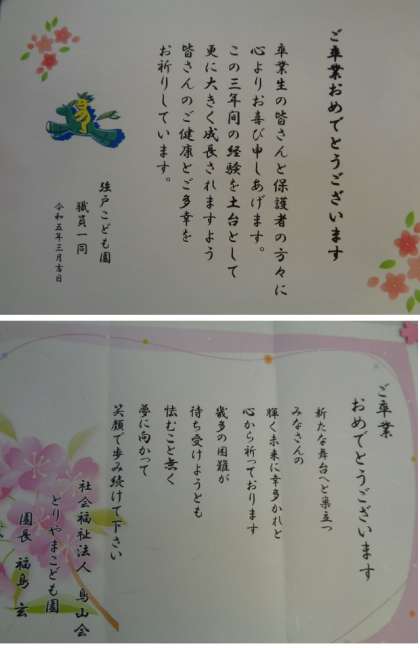 ご卒業おめでとうございます
卒業生の皆さんと保護者の方々に
心よりお喜び申しあげます。
この三年間の経験を土台として
更に大きく成長されますよう
皆さんのご健康とご多幸を
お祈りしています。
強戸こども園
職員一同
令和五年三月吉日
ご卒業
おめでとうございます
新たな舞台へと巣立つ
みなさんの
輝く未来に幸多かれと
心から祈っております
幾多の困難が
待ち受けようとも
怯むこと無く
夢に向かって
笑顔で歩み続けて下さい
社会福祉法人 鳥山会
とりやまこども園
園長 福島 玄